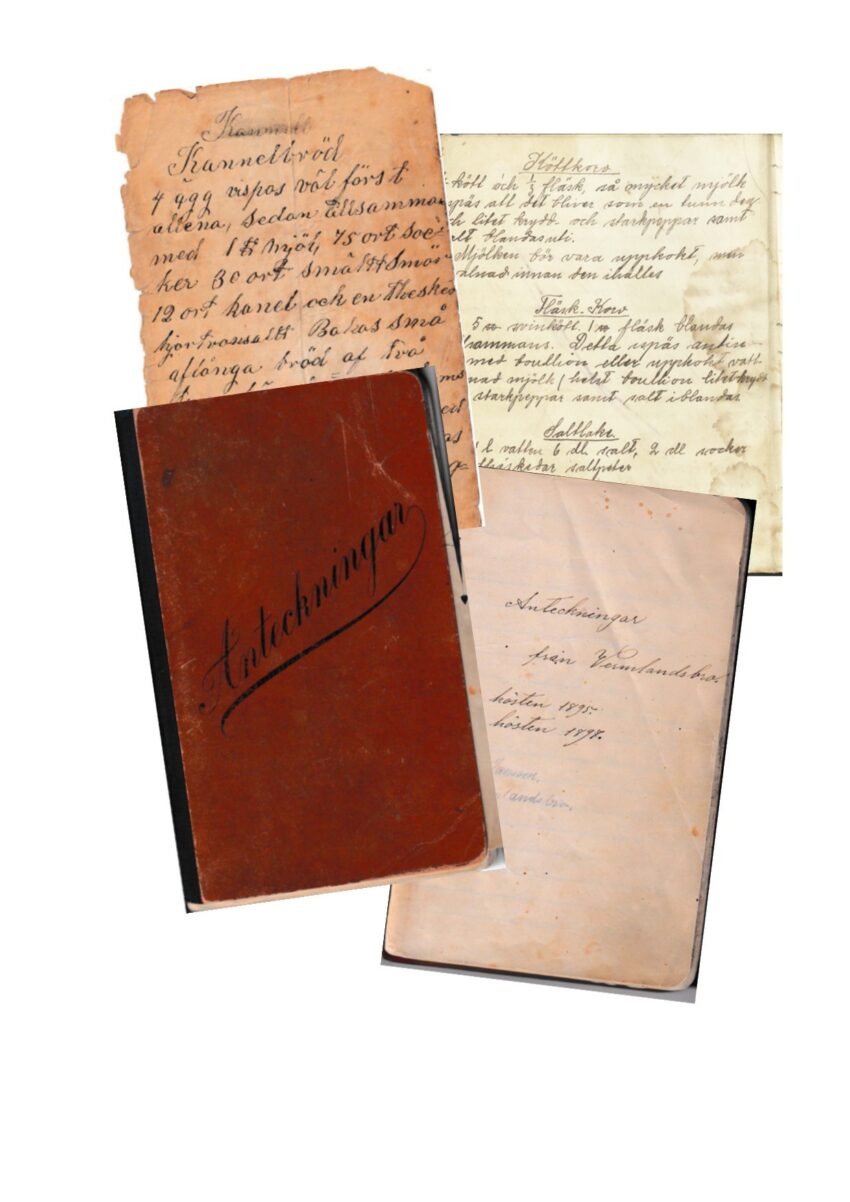 Kannelbröd
4 ägg vispas väl först
allena, sedan tillsamman
med 1 ℔ mjöl, 75 ort soc-
ker 30 ort smält smör
12 ort kanel och en thesked
hjortronsalt Bakas små
aflånga bröd af två
Köttkorv
kött och ½ fläsk, så mycket mjölk
spås att det bliver som en tunn deg
och litet krydd- och starkpeppar samt
salt blandas uti.
Mjölken bör vara uppkokt, men
kalnad innan den ihälles
Fläsk-Korv
5 svinkött 1 fläsk blandas
tillsammans. Detta spås
med boullion eller uppkokt
mjölk / helst boullion litet krydd
starkpeppar samt salt iblandas
Saltlake
1 l vatten 6 dl. salt, 2 dl socker
saltpeter
Anteckningar
Anteckningar
från Vermlandsbro.
hösten 1895.
hösten 1898.